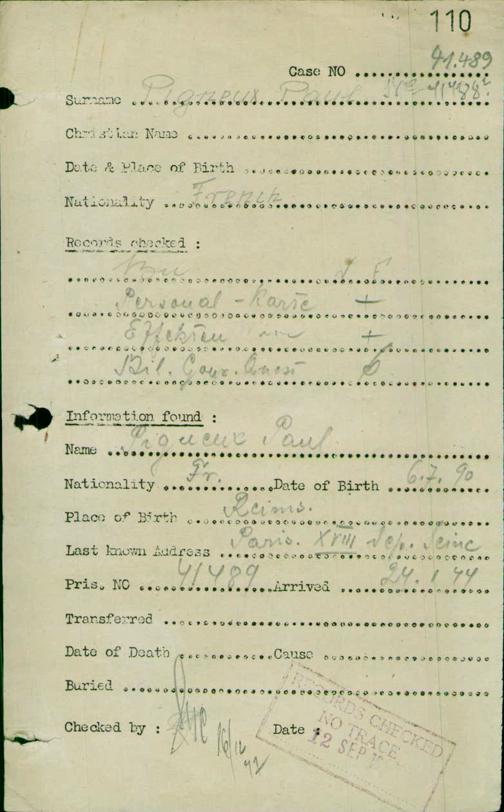 110
Case NO 41.489
Surname Pigneux Paul
Christian Name
Date & Place of Birth
Nationality French
Records checked :
Personal - Karte +
Effekten +
Information found :
Name Pigneux Paul
Nationality Fr. Date of Birth 6.7. 90
Place of Birth Reims.
Last known Address Paris. XVIII Dep. Seine
Pris. NO 41489 Arrived 24. 1 44
Transferred
Date of Death Cause
Buried
Checked by : Date :
RECORDS CHECKED
NO TRACE.
12 SEP